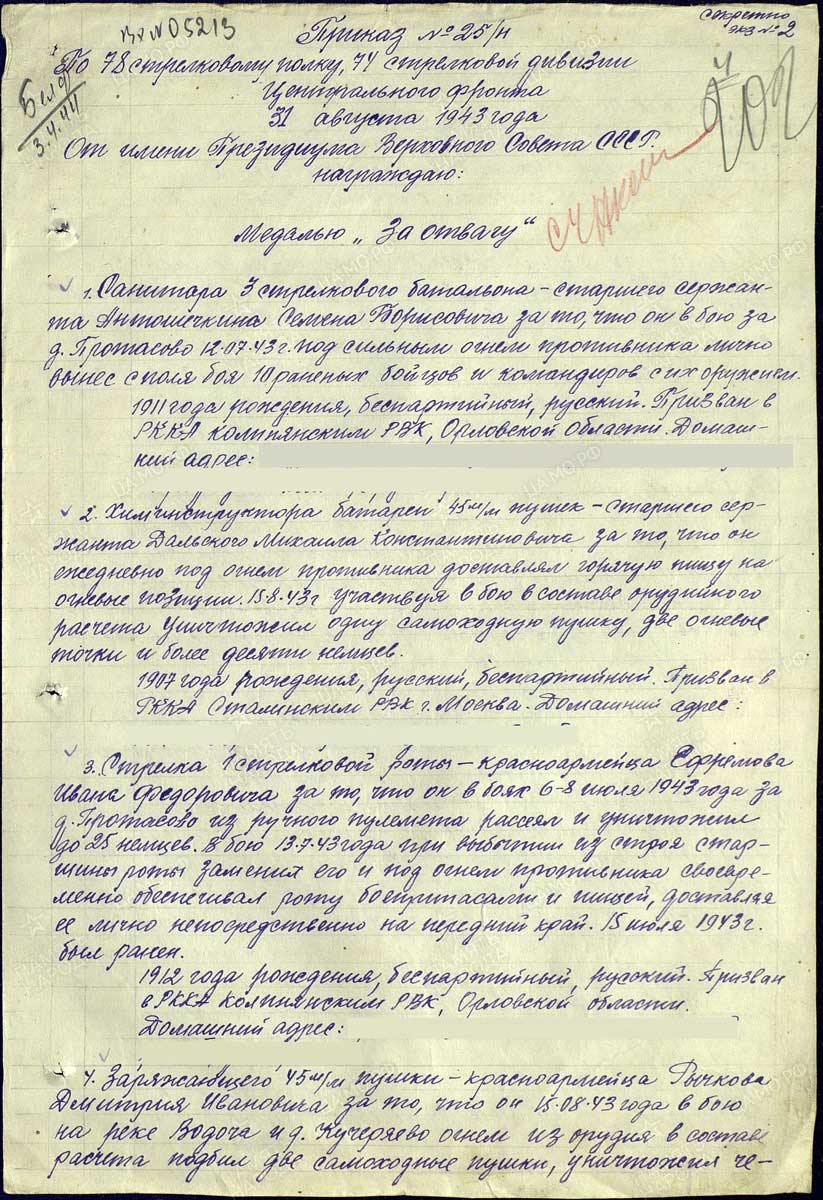 Вх N 05213
Секретно
экз № 2
Приказ № 25/н
По 78 стрелковому полку, 74 стрелковой дивизии
Центрального фронта
31 августа 1943 года
От имени Президиума Верховного Совета СССР.
награждаю:
3.4.44
Медалью „За отвагу“
1. Санитара 3 стрелкового батальона – старшего сержан-
та Антошечкина Семена Борисовича за то, что он в бою за
д. Протасово 12.07.43 г. под сильным огнем противника лично
вынес с поля боя 10 раненых бойцов и командиров с их оружием.
1911 года рождения, беспартийный, русский. Призван в
РККА Колпнянским РВК, Орловской области. Домаш-
ний адрес:
2. Химинструктора батареи 45 м/м пушек – старшего сер-
жанта Дальского Михаила Константиновича за то, что он
ежедневно под огнем противника доставлял горячую пищу на
огневые позиции. 15.8.43 г участвуя в бою в составе орудийного
расчета уничтожил одну самоходную пушку, две огневые
точки и более десяти немцев.
1907 года рождения, русский, беспартийный. Призван в
РККА Сталинским РВК г. Москва. Домашний адрес:
3. Стрелка 1 стрелковой роты – красноармейца Ефремова
Ивана Федоровича за то, что он в боях 6-8 июля 1943 года за
д. Протасово из ручного пулемета рассеял и уничтожил
до 25 немцев. В бою 13.7.43 года при выбытии из строя стар-
шины роты заменил его и под огнем противника своевре-
менно обеспечивал роту боеприпасами и пищей, доставляя
ее лично непосредственно на передний край. 15 июля 1943 г.
был ранен.
1912 года рождения, беспартийный, русский. Призван
в РККА Колпнянским РВК, Орловской области.
Домашний адрес:
4. Заряжающего 45 м/м пушки – красноармейца Рычкова
Дмитрия Ивановича за то, что он 15.08.43 года в бою
на реке Водоча и д. Кучеряево огнем из орудия в составе
расчета подбил две самоходные пушки, уничтожил че-